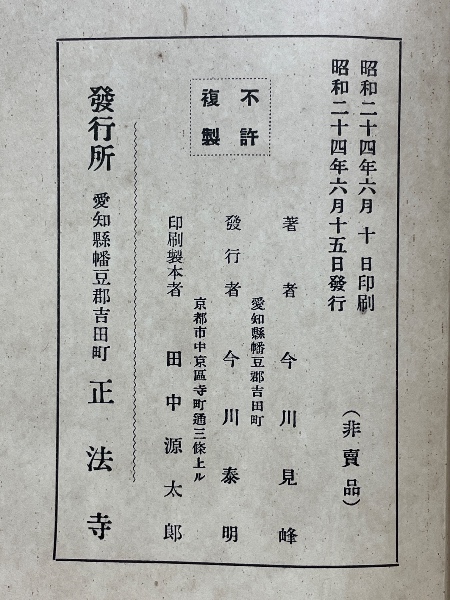 昭和二十四年六月 十 日印刷
昭和二十四年六月十五日發行
(非賣品)
不許
複製
著者 今川見峰
愛知縣幡豆郡吉田町
發行者 今川泰明
京都市中京區寺町通三條上ル
印刷製本者 田中源太郎
發行所 愛知縣幡豆郡吉田町 正法寺